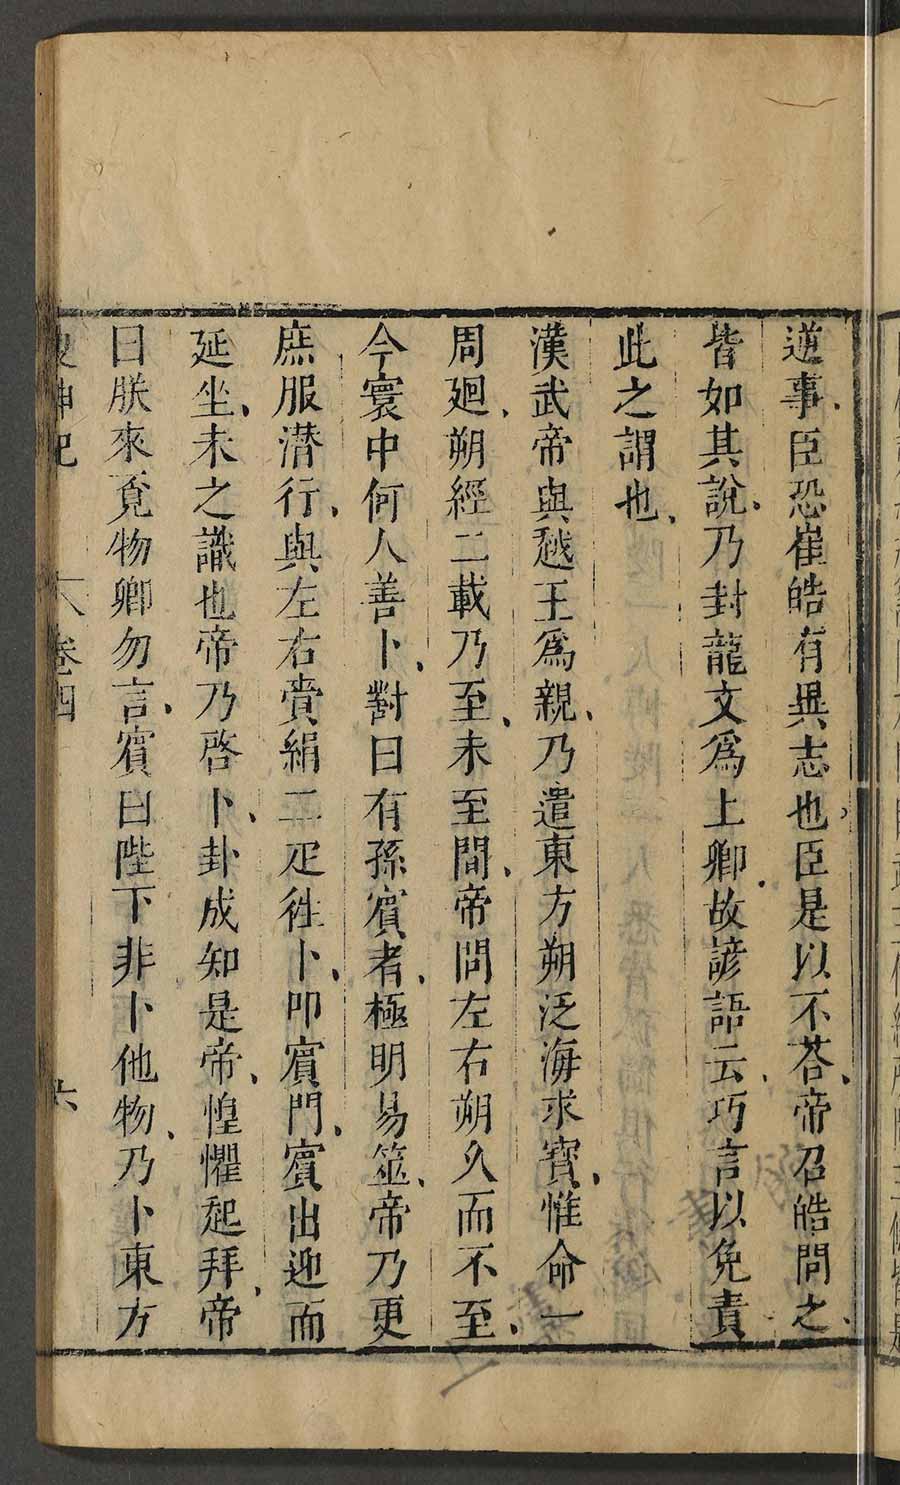 道事臣恐崔皓有異志也臣是以不荅帝召皓問之
皆如其說乃封龍文爲上卿故諺語云巧言以免責
此之謂也
漢武帝與越王爲親乃遣東方朔泛海求寶惟命一
周廻朔經二載乃至未至間帝問左右朔久而不至
今寰中何人善卜對曰有孫賓者極明易筮帝乃更
庶服潜行與左右賫絹二疋徃卜叩賓門賓出迎而
延坐未之識也帝乃啓卜卦成知是帝惶懼起拜帝
曰朕來覔物卿勿言賓曰陛下非卜他物乃卜東方
搜神記 卷四 六